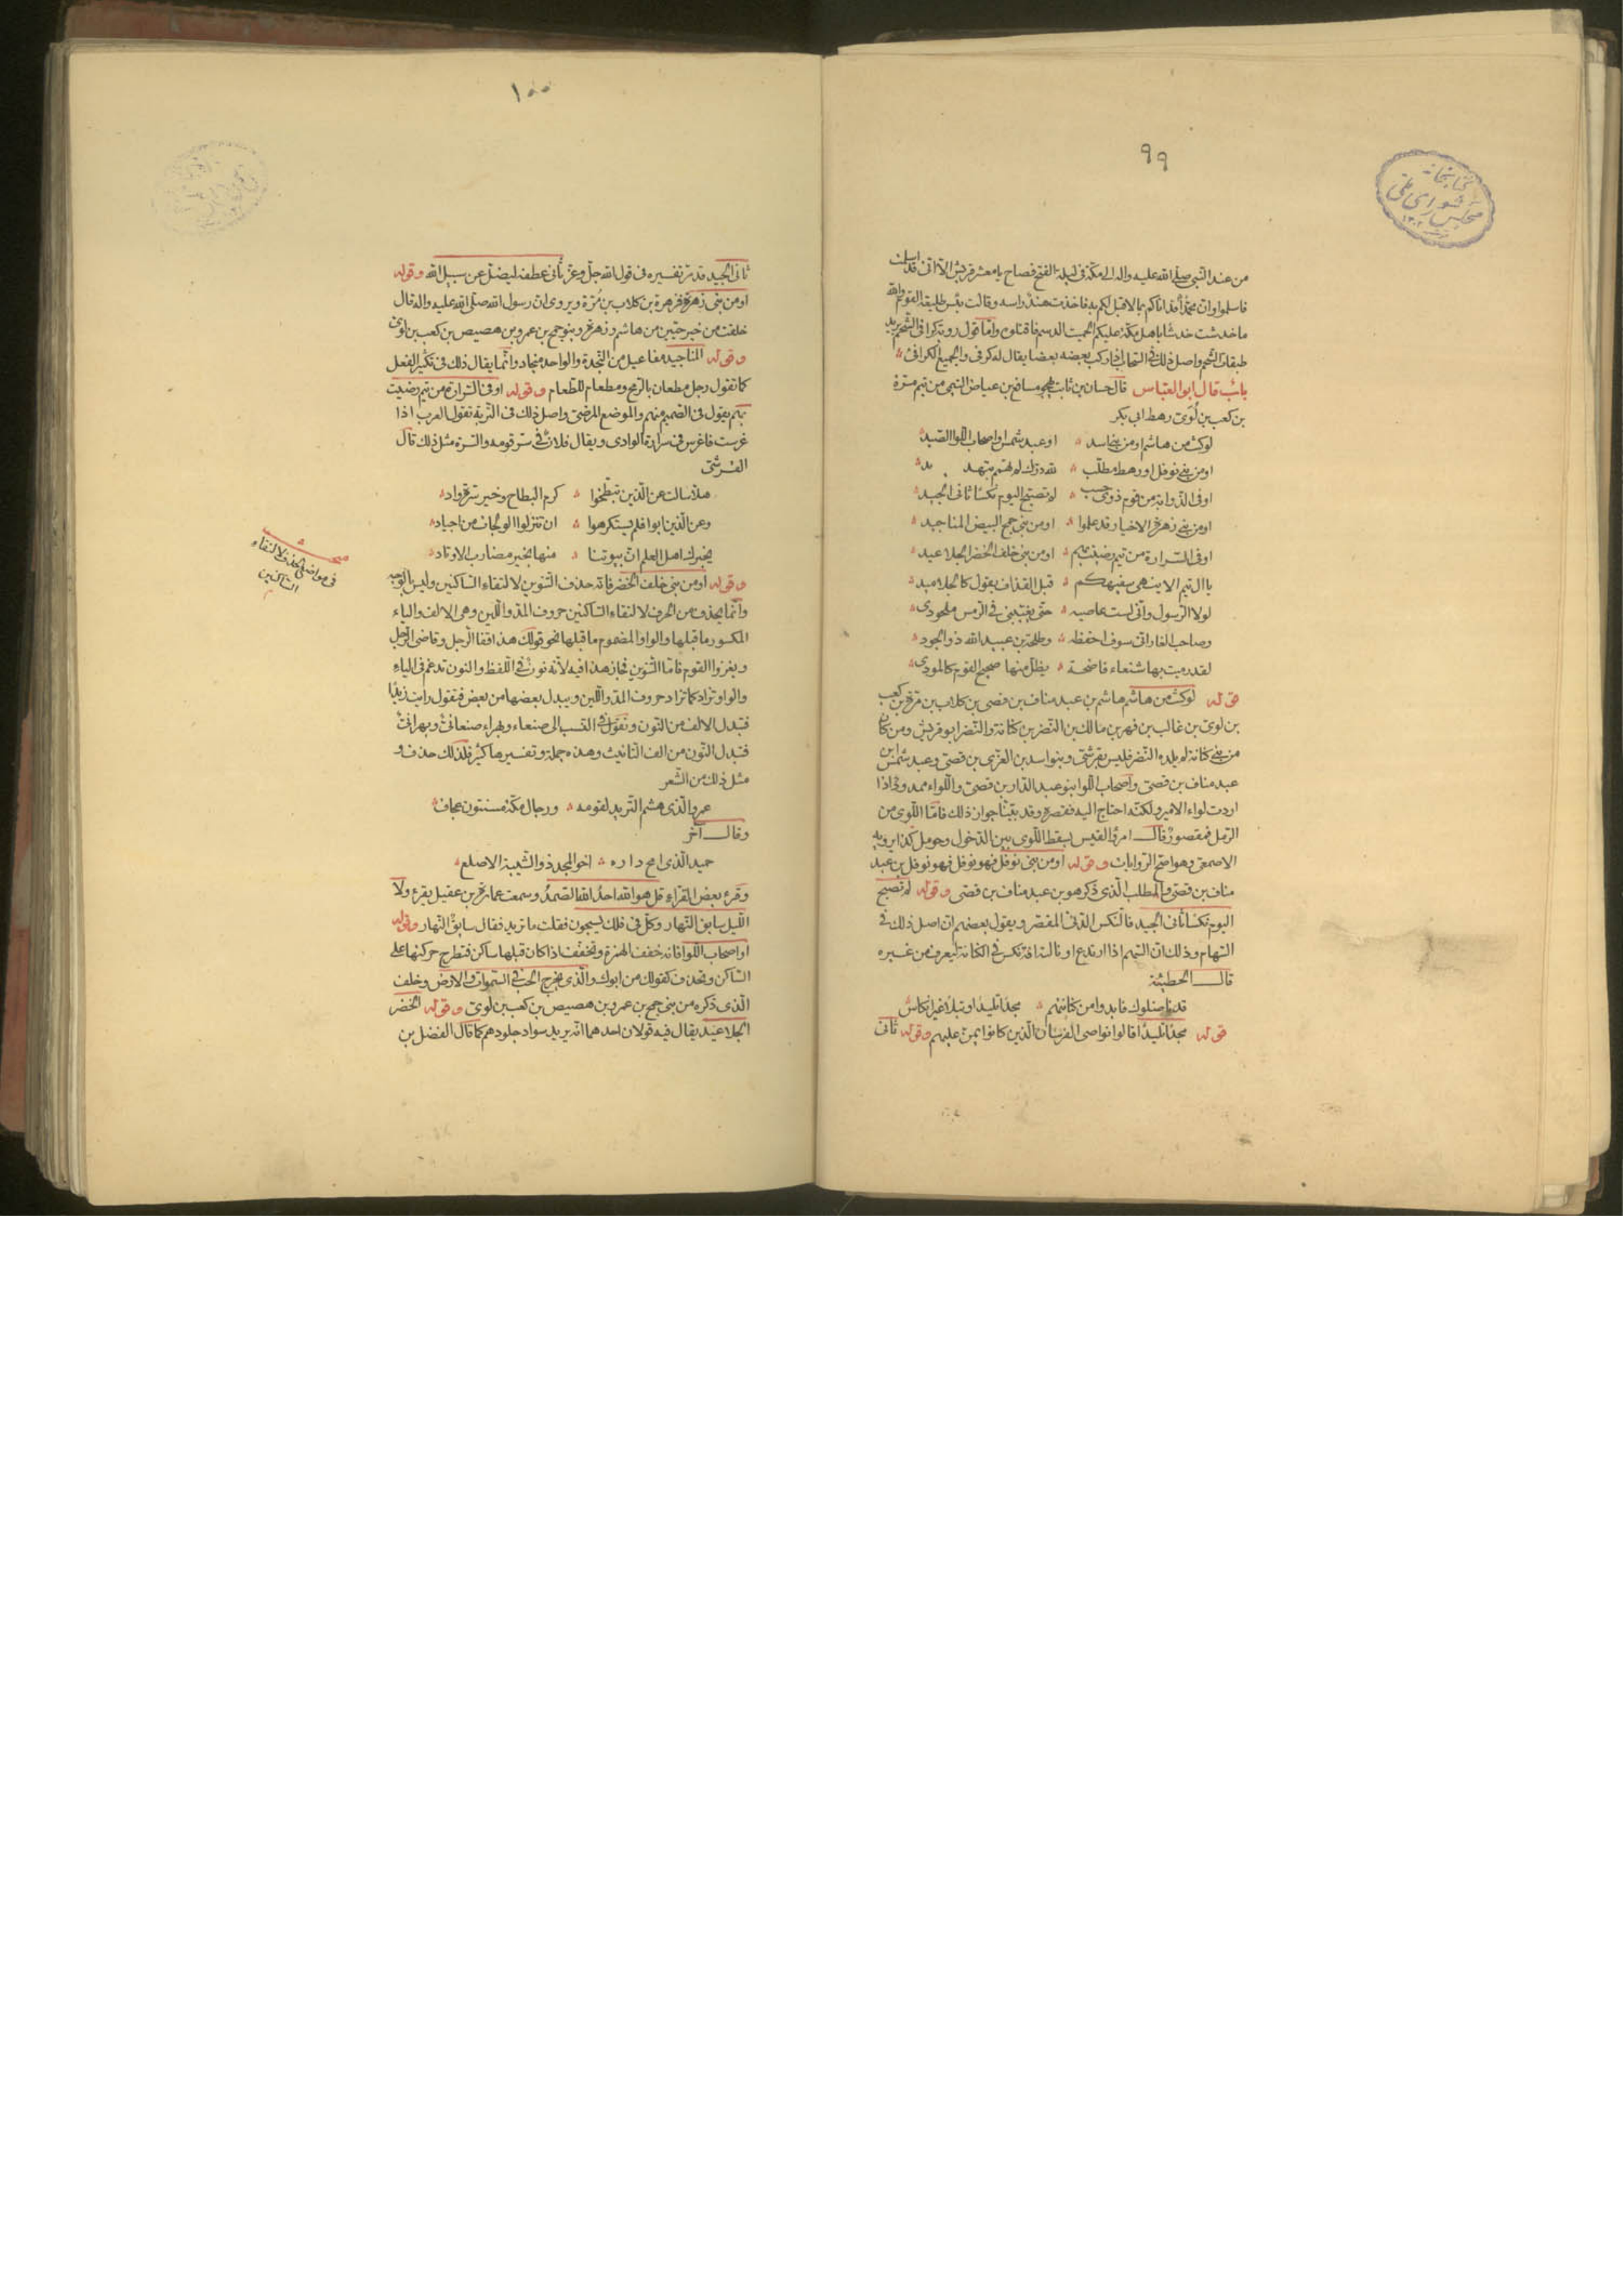 ٩٩
من عند النبی صلی الله علیه واله الی مکة فی لیلة الفتح فصاح یا معشر قریش الا انی قد اسلمت
فاسلموا وان محمدا قد اتاکم بما لا قبل لکم به فاخذت هند راسه وقالت بئس طلیعة القوم والله
ما خدشت خدشا یا اهل مکة علیکم الحمیت الدسم فاقتلوه واما قول رؤبة کرافی الشحم یرید
طبقات الشحم واصل ذلک فی السحاب اذا رکب بعضه بعضا یقال له کرفی والجمیع الکرافی
باب قال ابو العباس قال حسان بن ثابت یهجو مسافع بن عیاض التیمی من تیم مرة
بن کعب بن لؤی رهط ابی بکر
لو کنت من هاشم او من بنی اسد او عبد شمس او اصحاب اللوا الصید
او من بنی نوفل او رهط مطلب لله درک لم تهمم بتهدید
او فی الذوابة من قوم ذوی حسب لم تصبح الیوم نکسا ثانی الجید
او من بنی زهرة الاخیار قد علموا او من بنی جمح البیض المناجید
او فی السرارة من تیم رضیت بهم او من بنی خلف الخضر الجلاعید
یا ال تیم الا ینهی سفیهکم قبل القذاف بقول کالجلامید
لولا الرسول وانی لست عاصیه حتی یغیبنی فی الرمس ملحودی
وصاحب الغار انی سوف احفظه وطلحة بن عبید الله ذو الجود
لقد رمیت بها شنعاء فاضحة یظل منها صحیح القوم کالمودی
قوله لو کنت من هاشم هاشم بن عبد مناف بن قصی بن کلاب بن مرة بن کعب
بن لوی بن غالب بن فهر بن مالک بن النضر بن کنانة والنضر ابو قریش ومن کان
من بنی کنانة لم یلده النضر فلیس بقرشی وبنو اسد بن العزی بن قصی وعبد شمس ابن
عبد مناف بن قصی واصحاب اللوا بنو عبد الدار بن قصی واللواء ممدود اذا
اردت لواء الامیر ولکنه احتاج الیه فقصره وقد بینا جواز ذلک فاما اللوی من
الرمل فمقصور قال امرؤ القیس بسقط اللوی بین الدخول وحومل کذا یرویه
الاصمعی وهو اصح الروایات وقوله او من بنی نوفل فهو نوفل فهو نوفل بن عبد
مناف بن قصی والمطلب الذی ذکره هو بن عبد مناف بن قصی وقوله لم تصبح
الیوم نکسا ثانی الجید فالنکس الدنی المقصر ویقول بعضهم ان اصل ذلک فی
السهام وذلک ان السهم اذا ارتدع او نالته افة نکس فی الکنانة لیعرف من غیره
قال الحطیئة
قد ناضلوک فابدوا من کنانتهم مجدا تلیدا ونبلا غیر انکاس
قوله مجدا تلیدا قالوا نواصی الفرسان الذین کانوا یمن علیهم وقوله ثانی
١٠٠
ثانی الجید قد مر تفسیره فی قول الله جل وعز ثانی عطفه لیضل عن سبیل الله وقوله
او من بنی زهرة فزهرة بن کلاب بن مرة ویروی ان رسول الله صلی الله علیه واله قال
خلقت من خیر حیین من هاشم وزهرة وبنو جمح بن عمرو بن هصیص بن کعب بن لوی
وقوله المناجید مفاعیل من النجدة والواحد منجاد وانما یقال ذلک فی تکثیر الفعل
کما تقول رجل مطعان بالرمح ومطعام للطعام وقوله او فی السرارة من تیم رضیت
بهم یقول فی الصمیم منهم والموضع المرضی واصل ذلک فی التربة تقول العرب اذا
غرست فاغرس فی سرارة الوادی ویقال فلان فی سر قومه والسرة مثل ذلک قال
القرشی
هلا سالت عن الذین تبطحوا کرم البطاح وخیر سرة واد
وعن الذین ابوا فلم یستکرهوا ان تنزلوا الولجات من اجیاد
یخبرک اهل العلم ان بیوتنا منها بخیر مضارب الاوتاد
وقوله او من بنی خلف الخضر فانه حذف التنوین لالتقاء الساکنین ولیس بالوجه
وانما یحذف من الحرف لالتقاء الساکنین حروف المد واللین وهی الالف والیاء
المکسور ما قبلها والواو المضموم ما قبلها نحو قولک هذا قفا الرجل وقاضی الرجل
ویغزوا القوم فاما التنوین فجاز هذا فیه لانه نون فی اللفظ والنون تدغم فی الیاء
والواو وتزاد کما تزاد حروف المد واللین ویبدل بعضها من بعض فتقول رایت زیدا
فتبدل الالف من النون وتقول فی النسب الی صنعاء وبهراء صنعانی وبهرانی
فتبدل النون من الف التانیث وهذه جملة وتفسیرها کثیر فلذلک حذف و
مثل ذلک من الشعر
عمرو الذی هشم الثرید لقومه ورجال مکة مسنتون عجاف
وقال آخر
حمید الذی امج داره اخو المجد ذو الشیبة الاصلع
وقرء بعض القراء قل هو الله احد الله الصمد وسمعت عمارة بن عقیل یقرء ولا
اللیل سابق النهار وکل فی فلک یسبحون فقلت ما ترید فقال سابق النهار وقوله
او اصحاب اللوا فانه خفف الهمزة وتخفف اذا کان قبلها ساکن فتطرح حرکتها علی
الساکن وتحذف کقولک من ابوک والذی یخرج الخب فی السموات والارض وخلف
الذی ذکره من بنی جمح بن عمرو بن هصیص بن کعب بن لوی وقوله الخضر
الجلاعید یقال فیه قولان احدهما انه یرید سواد جلودهم کما قال الفضل بن
مبحث
فی مواضع الحذف لالتقاء
الساکنین
کتابخانه
مجلس شورای ملی